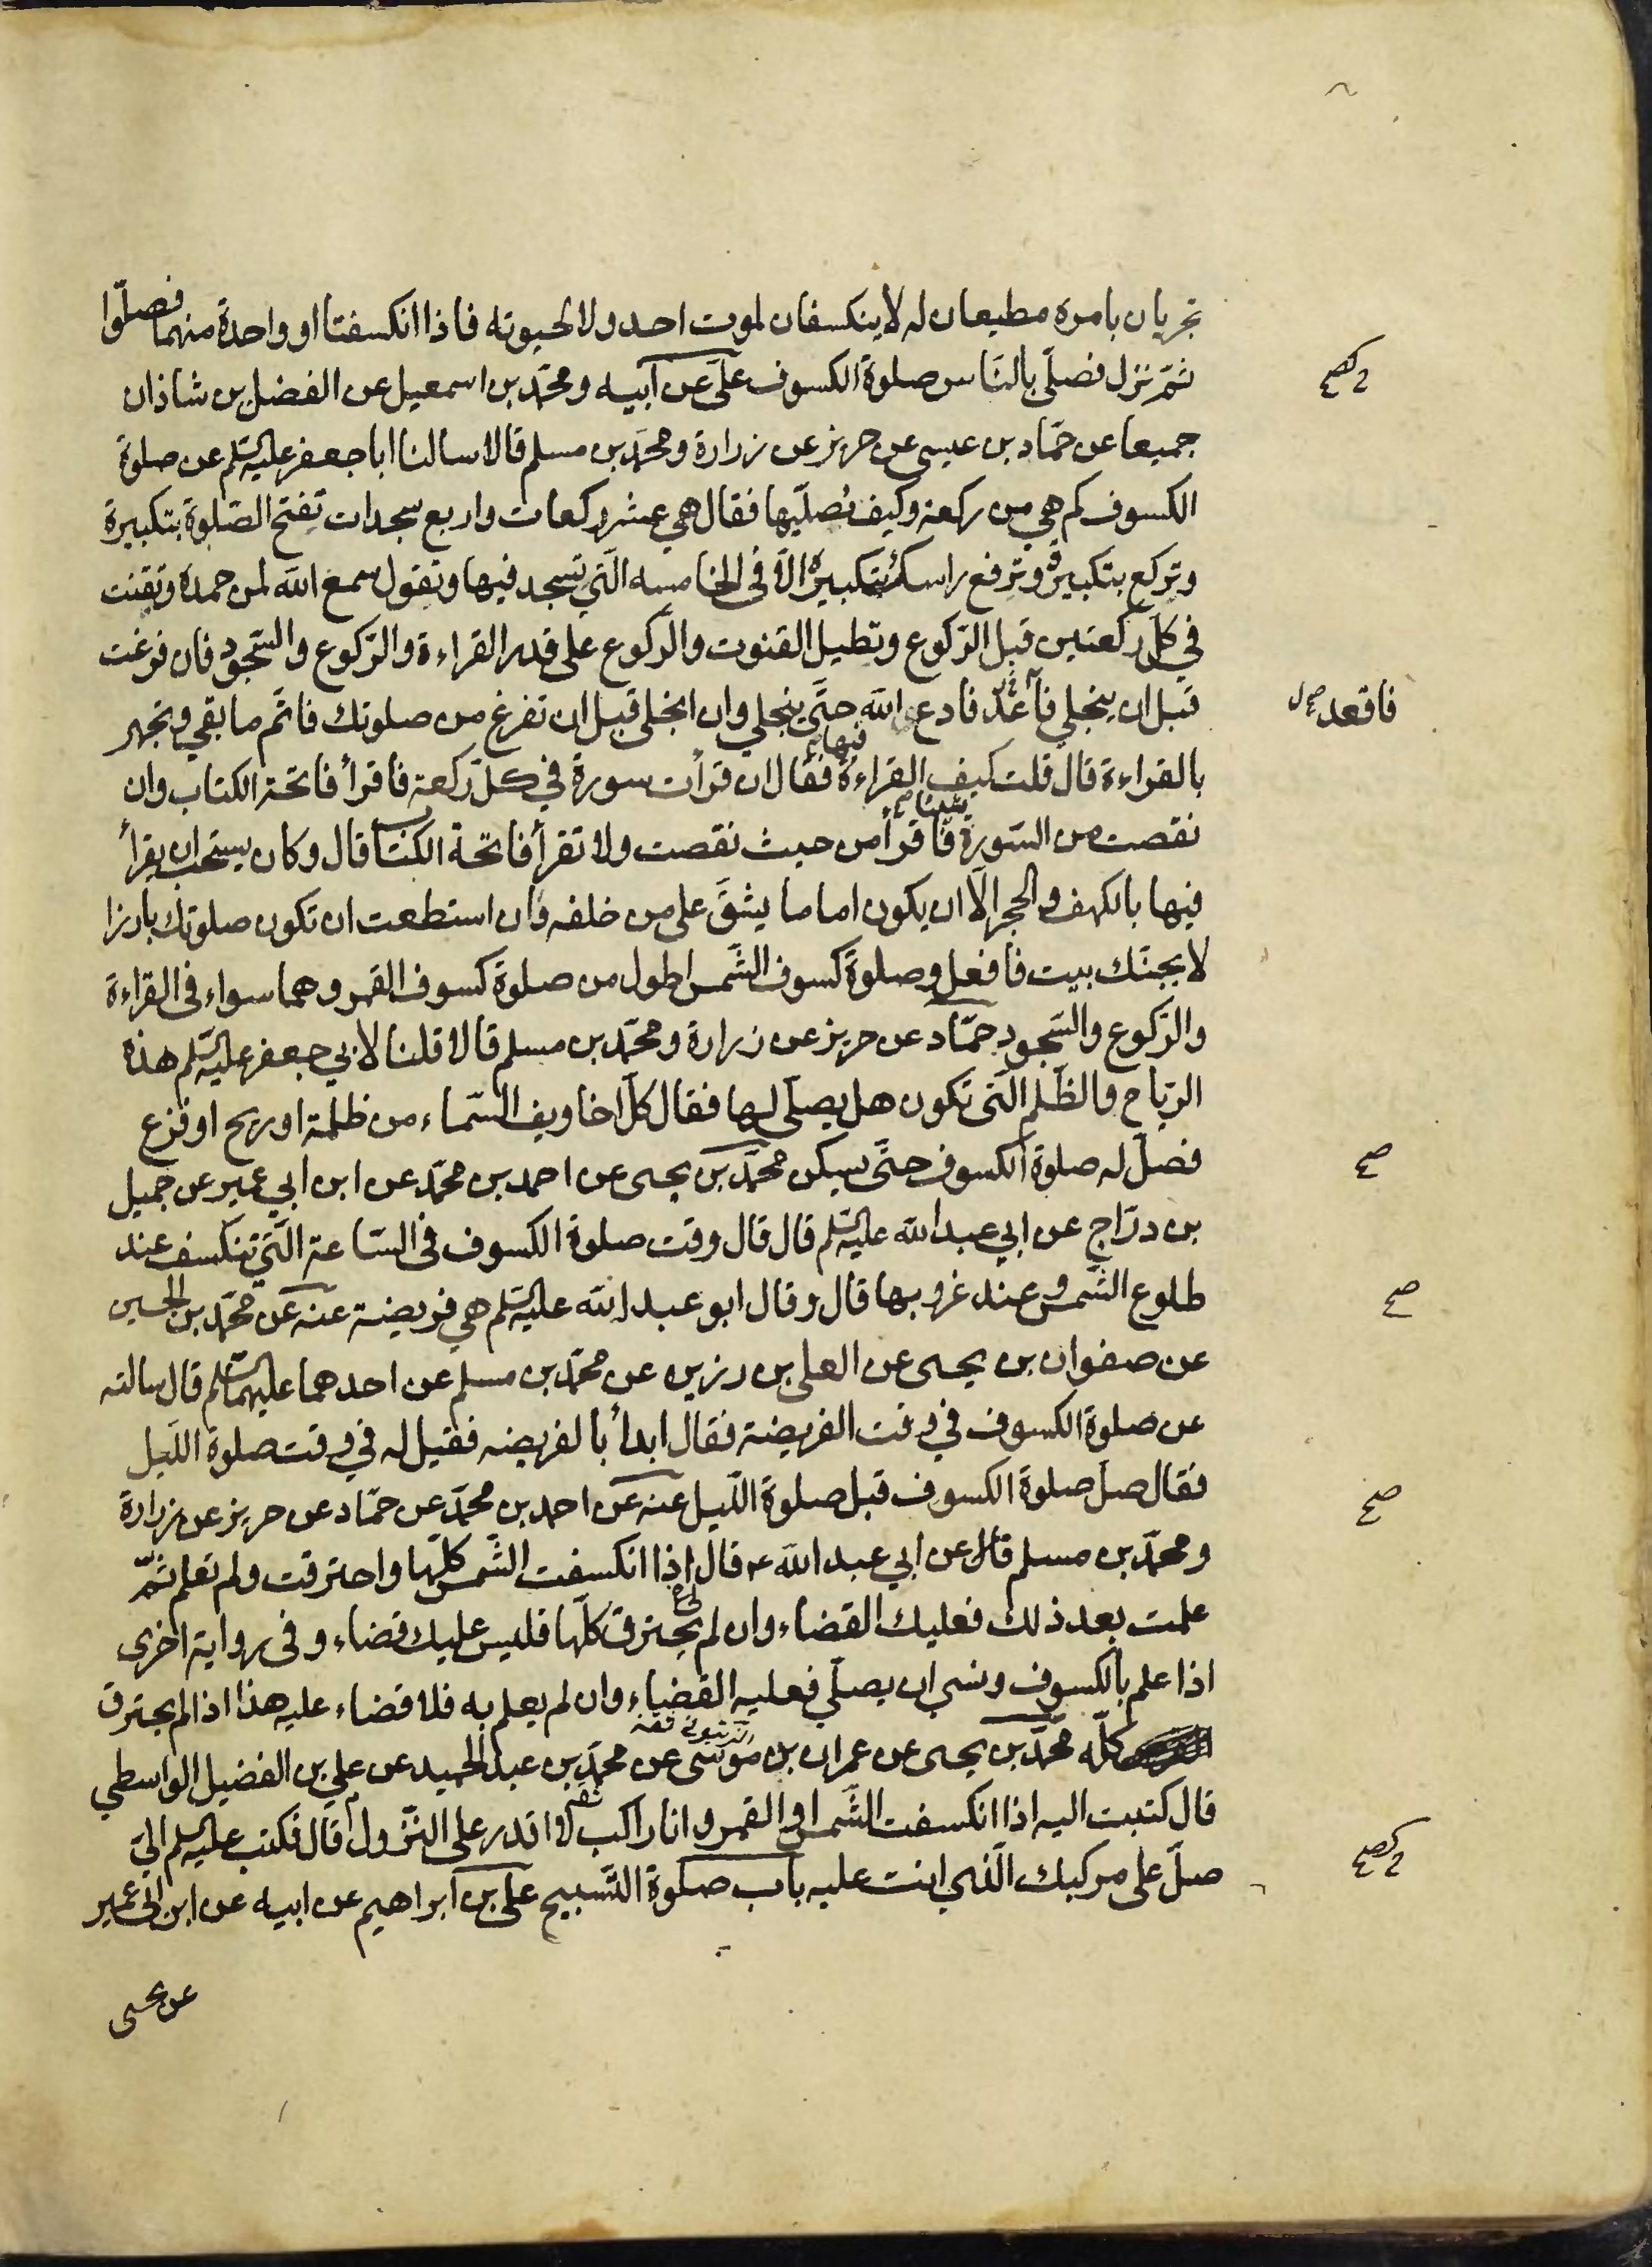 تجريان بامره مطيعان له لا ينكسفان لموت احد ولا لحيوته فاذا انكسفتا او واحدة منهما فصلّوا
ثمّ نزل فصلّى بالنّاس صلوة الكسوف علىّ عن ابيه ومحمّد بن اسمعيل عن الفضل بن شاذان
جميعا عن حمّاد بن عيسى عن حريز عن زرارة ومحمّد بن مسلم قالا سالنا ابا جعفر عليه السّلم عن صلوة
الكسوف كم هي من ركعة وكيف نصلّيها فقال هي عشر ركعات واربع سجدات تفتح الصّلوة بتكبيرة
وتركع بتكبيرة وترفع راسك بتكبيرة الّا في الخامسه الّتي تسجد فيها وتقول سمع الله لمن حمده وتقنت
في كلّ ركعتين قبل الرّكوع وتطيل القنوت والرّكوع على قدر القراءة والرّكوع والسّجود فان فرغت
قبل ان ينجلي فأعد فادع الله حتّى ينجلي وان انجلى قبل ان تفرغ من صلوتك فاتمّ ما بقي وتجهر
فاقعد صحل
بالقراءة قال قلت كيف القراءة فيها فقال ان قرأت سورة في كلّ ركعة فاقرأ فاتحة الكتاب وان
نقصت من السّورة شيئا فاقرأ من حيث نقصت ولا تقرأ فاتحة الكتاب قال وكان يستحب ان يقرأ
فيها بالكهف والحجر الّا ان يكون اماما يشقّ على من خلفه وان استطعت ان تكون صلوتك بارزا
لا يجنّك بيت فافعل وصلوة كسوف الشّمس اطول من صلوة كسوف القمر وهما سواء في القراءة
والرّكوع والسّجود حمّاد عن حريز عن زرارة ومحمّد بن مسلم قالا قلنا لابي جعفر عليه السّلم هذه
الرّياح والظّلم الّتى تكون هل يصلّى لها فقال كلّ اخاويف السّماء من ظلمة او ريح او فزع
فصلّ له صلوة الكسوف حتّى يسكن محمّد بن يحيى عن احمد بن محمّد عن ابن ابي عمير عن جميل
صح
بن درّاج عن ابي عبد الله عليه السّلم قال قال وقت صلوة الكسوف في السّاعة الّتي تنكسف عند
طلوع الشّمس وعند غروبها قال وقال ابو عبد الله عليه السّلم هي فريضة عنه عن محمّد بن الحسين
صح
عن صفوان بن يحيى عن العلى بن رزين عن محمّد بن مسلم عن احدهما عليهما السّلم قال سالته
عن صلوة الكسوف في وقت الفريضة فقال ابدأ بالفريضه فقيل له في وقت صلوة اللّيل
فقال صلّ صلوة الكسوف قبل صلوة اللّيل عنه عن احمد بن محمّد عن حمّاد عن حريز عن زرارة
صح
ومحمّد بن مسلم قال عن ابي عبد الله ع قال اذا انكسفت الشّمس كلّها واحترقت ولم تعلم ثمّ
علمت بعد ذلك فعليك القضاء وان لم يحترق كلّها فليس عليك قضاء وفي رواية اخرى
اذا علم بالكسوف ونسي ان يصلّي فعليه القضاء وان لم يعلم به فلا قضاء عليه هذا اذا لم يحترق
كلّه محمّد بن يحيى عن عمران بن موسى عن محمّد بن عبد الحميد عن علي بن الفضيل الواسطي
قال كتبت اليه اذا انكسفت الشّمس او القمر وانا راكب لا اقدر على النّزول قال فكتب عليه السّلم الىّ
صلّ على مركبك الّذي انت عليه باب صلوة التّسبيح على بن ابراهيم عن ابيه عن ابن ابى عمير
عن يحيى